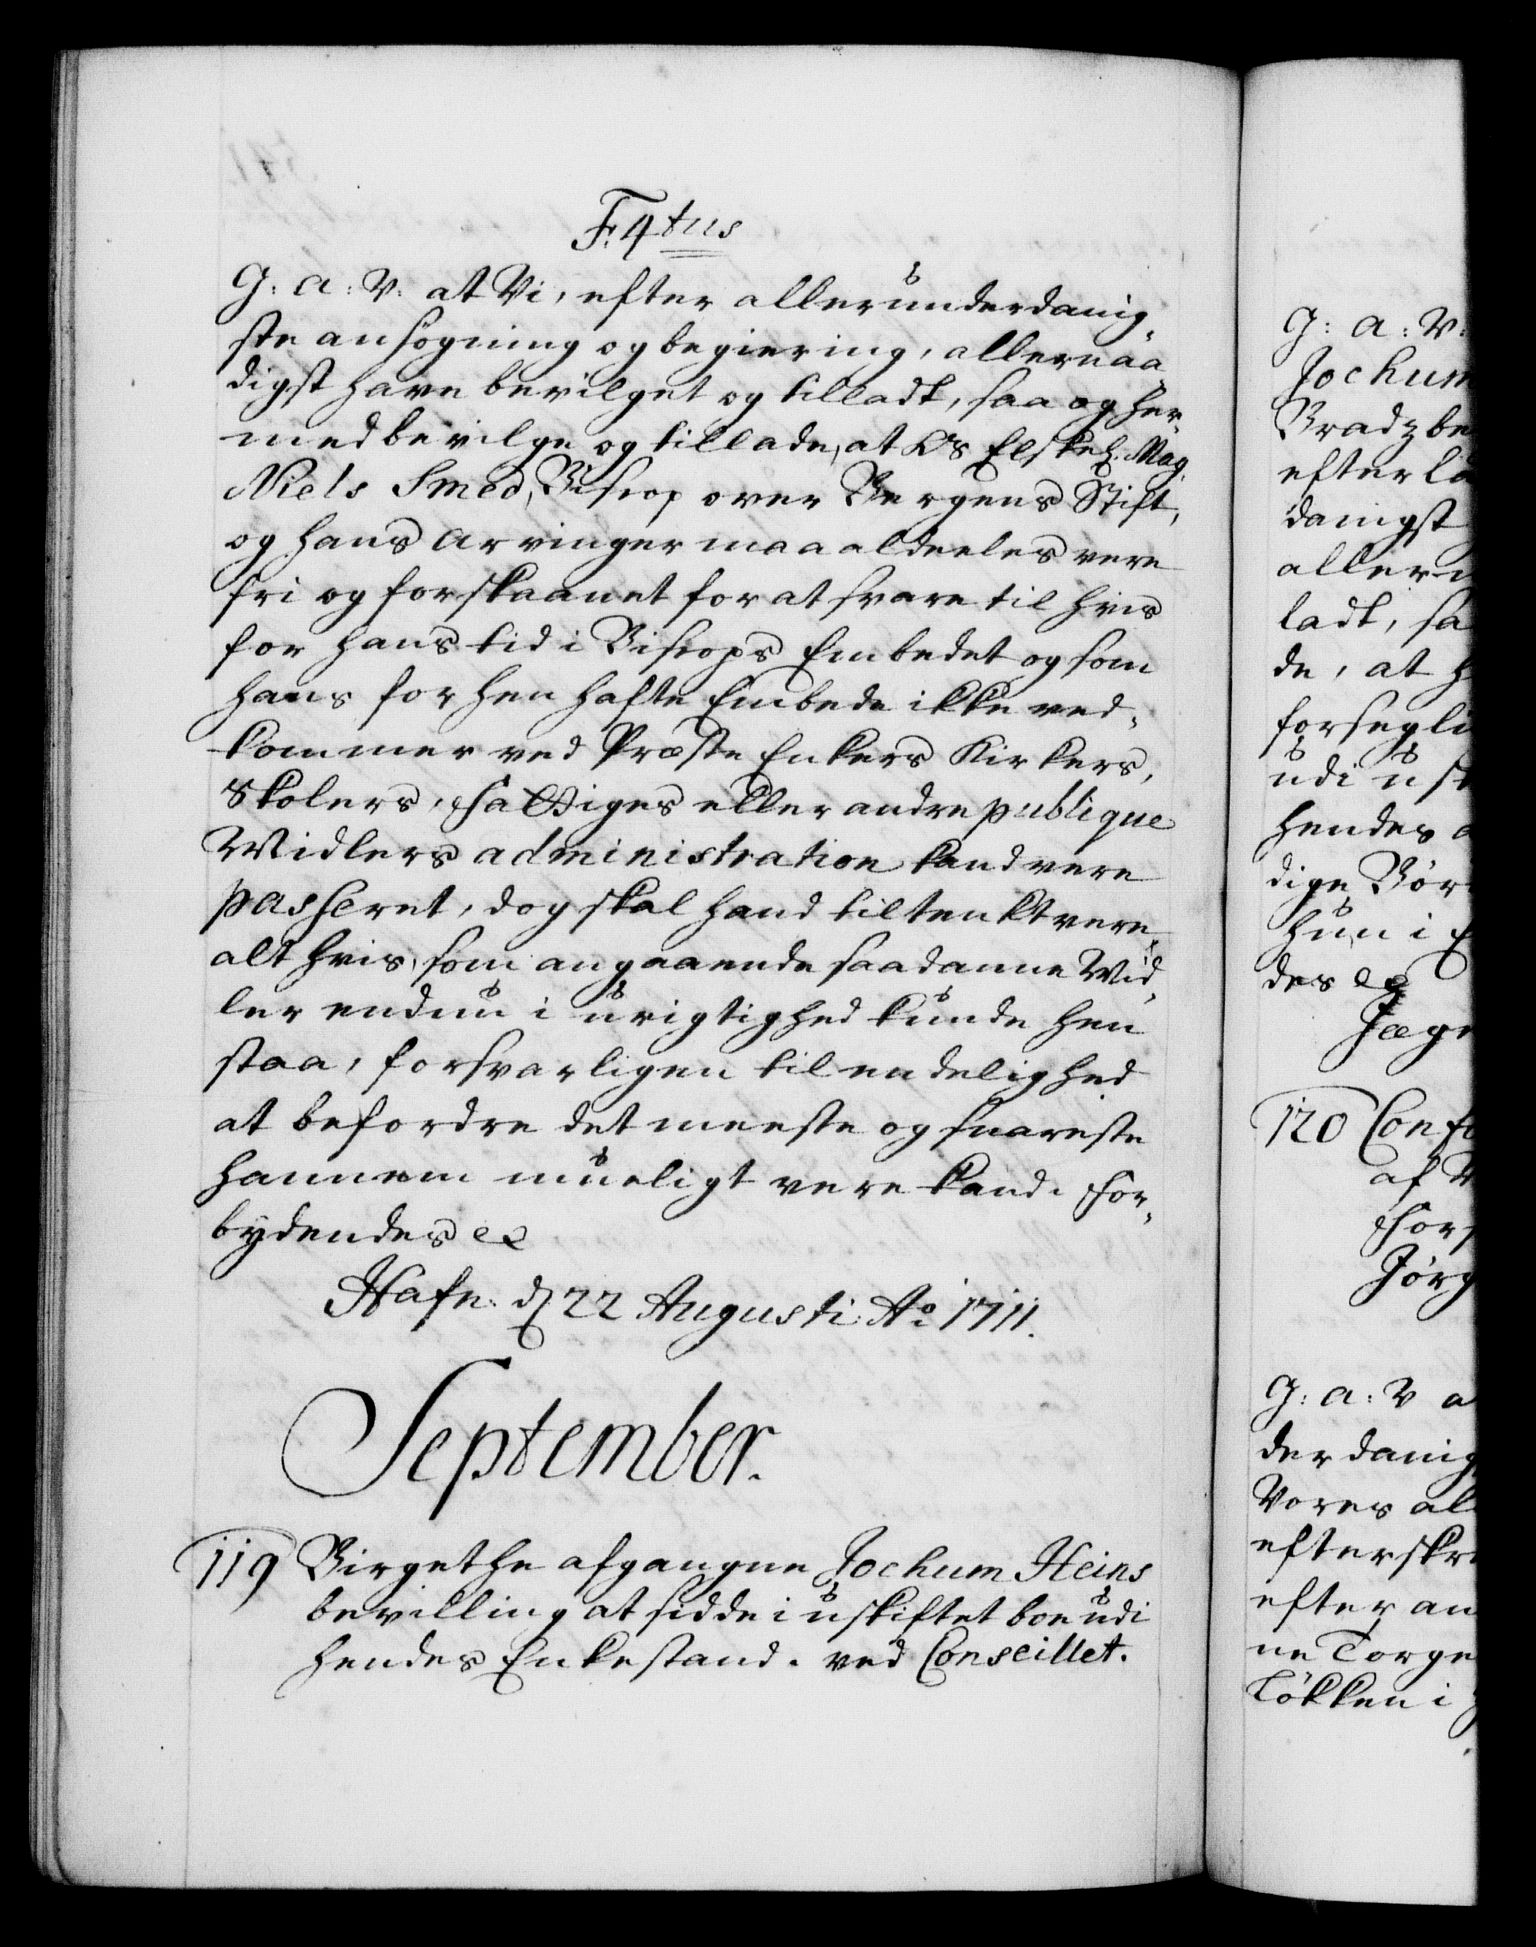 F. 4tus
G: a: V: at Vi, efter allerunderdanig-
ste ansøgning og begiering, allernaa-
digst have bevilget og tilladt, saa og her-
med bevilge og tillade, at Os Elskel. Mag.
Niels Smed, Biscop over Bergens Stift,
og hans Arvinger maa aldeeles vere
fri og forskaanet for at svare til hvis
for hans tid i Biscops Embedet og som
hans forhen hafte Embede ikke ved-
kommer ved Præste Enkers Kirkers,
Skolers, Fattiges eller andre publique
Midlers administration kand vere
passeret, dog skal hand tiltenkt vere
alt hvis, som angaaende saadanne Mid-
ler endnu i urigtighed kunde hen
staa, forsvarligen til endelighed
at befordre det meeste og snareste
hannem mueligt vere kand. For-
bydendes etc
Hafn. d 22 Augusti Ao 1711.
September.
119 Birgethe afgangne Jochum Heins
bevilling at sidde i uskiftet boe udi
hendes Enkestand. ved Conseillet.
G: a: V:
Jochum
Bradzbe
efterla
danigst
allern
ladt, sa
de, at h
forsegli
udi usk
hendes
dige Bør
hun i E
des etc
Jæge
120 Confi
af
Fors
Jørg
G: a: V a
derdanig
Vores al
efterskre
efter an
ne Torge
Løkken i